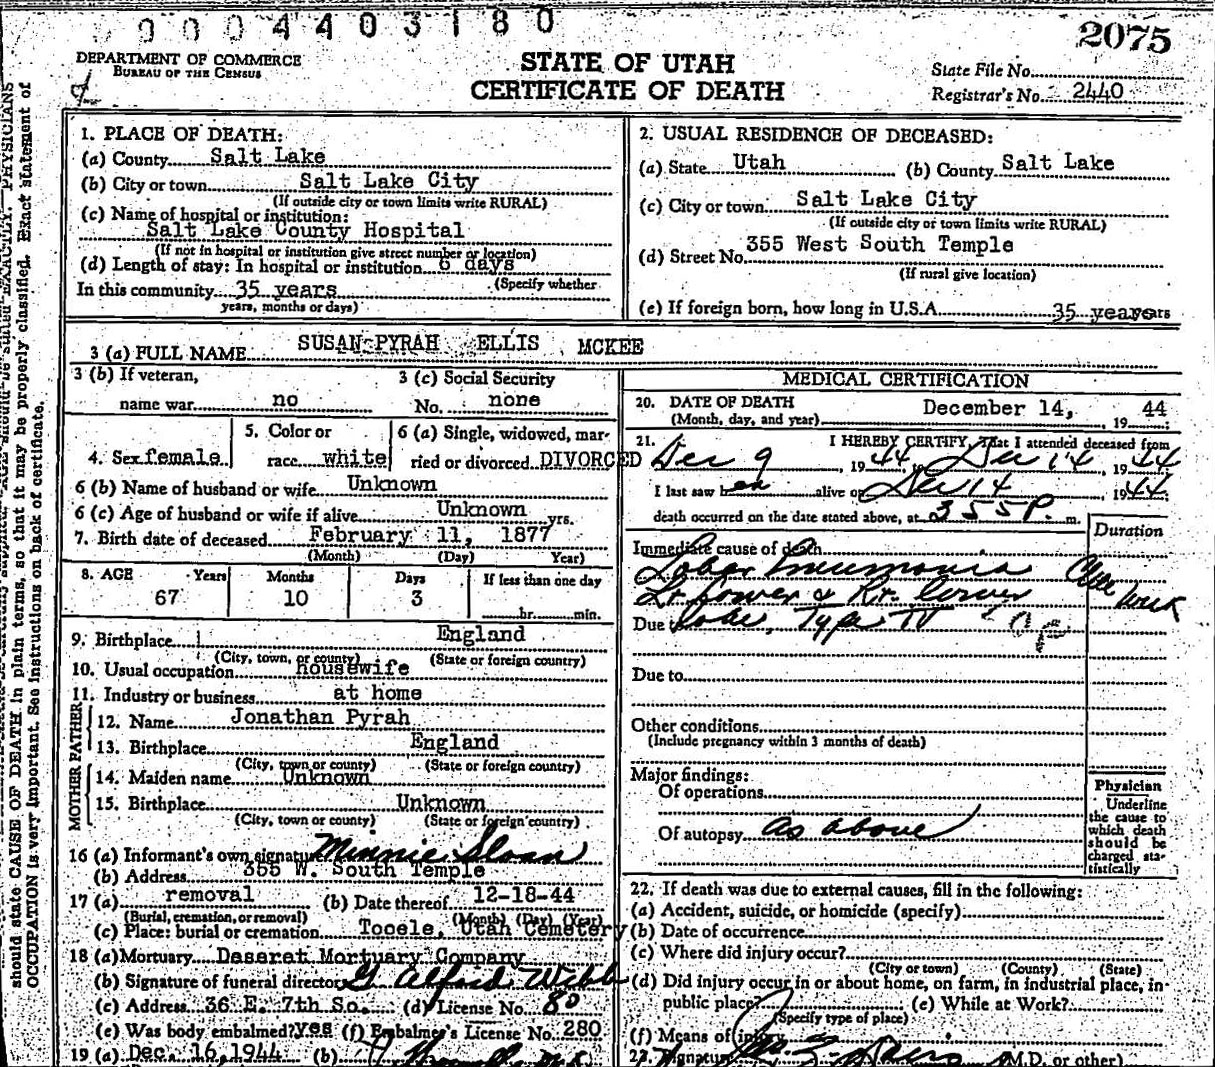 0004403180
2075
DEPARTMENT OF COMMERCE
BUREAU OF THE CENSUS
STATE OF UTAH
CERTIFICATE OF DEATH
State File No.
Registrar's No. 2440
1. PLACE OF DEATH:
(a) County Salt Lake
(b) City or town Salt Lake City
(If outside city or town limits write RURAL)
(c) Name of hospital or institution:
Salt Lake County Hospital
(If not in hospital or institution give street number or location)
(d) Length of stay: In hospital or institution 6 days
(Specify whether
In this community 35 years
years, months or days)
2. USUAL RESIDENCE OF DECEASED:
(a) State Utah (b) County Salt Lake
(c) City or town Salt Lake City
(If outside city or town limits write RURAL)
(d) Street No. 355 West South Temple
(If rural give location)
(e) If foreign born, how long in U.S.A. 35 years years
3 (a) FULL NAME SUSAN PYRAH ELLIS MCKEE
3 (b) If veteran,
name war no
3 (c) Social Security
No. none
4. Sex female
5. Color or
race white
6 (a) Single, widowed, mar-
ried or divorced DIVORCED
6 (b) Name of husband or wife Unknown
6 (c) Age of husband or wife if alive Unknown yrs.
7. Birth date of deceased February 11, 1877
(Month) (Day) Year)
8. AGE Years Months Days If less than one day
67 10 3 hr. min.
9. Birthplace England
(City, town, or county) (State or foreign country)
10. Usual occupation housewife
11. Industry or business at home
FATHER
12. Name Jonathan Pyrah
13. Birthplace England
(City, town or county) (State or foreign country)
MOTHER
14. Maiden name Unknown
15. Birthplace Unknown
(City, town or county) (State or foreign country)
16 (a) Informant's own signature Minnie Sloan
(b) Address 355 W. South Temple
17 (a) removal (b) Date thereof 12-18-44
(Burial, cremation, or removal) (Month) (Day) (Year)
(c) Place: burial or cremation Tooele, Utah Cemetery
18 (a) Mortuary Deseret Mortuary Company
(b) Signature of funeral director G Alfred Webb
(c) Address 36 E. 7th So. (d) License No. 80
(e) Was body embalmed? yes (f) Embalmer's License No. 280
19 (a) Dec. 16, 1944 (b)
MEDICAL CERTIFICATION
20. DATE OF DEATH
(Month, day, and year) December 14, 19 44
21. I HEREBY CERTIFY, That I attended deceased from
Dec 9, 19 44 to Dec 14 19 44
I last saw her alive on Dec 14, 19 44
death occurred on the date stated above, at 3 55 P. m.
Duration
Immediate cause of death
Lobar Pneumonia One
Lt. lower & Rt. lower Week
Due to lobe, Type IV
Due to
Other conditions
(Include pregnancy within 3 months of death)
Major findings:
Of operations
Of autopsy as above
Physician
Underline
the cause to
which death
should be
charged sta-
tistically
22. If death was due to external causes, fill in the following:
(a) Accident, suicide, or homicide (specify)
(b) Date of occurrence
(c) Where did injury occur?
(City or town) (County) (State)
(d) Did injury occur in or about home, on farm, in industrial place, in
public place? (e) While at Work?
(Specify type of place)
(f) Means of injury
23. Signature (M.D. or other)
should state CAUSE OF DEATH in plain terms, so that it may be properly classified. Exact statement of
OCCUPATION is very important. See instructions on back of certificate.